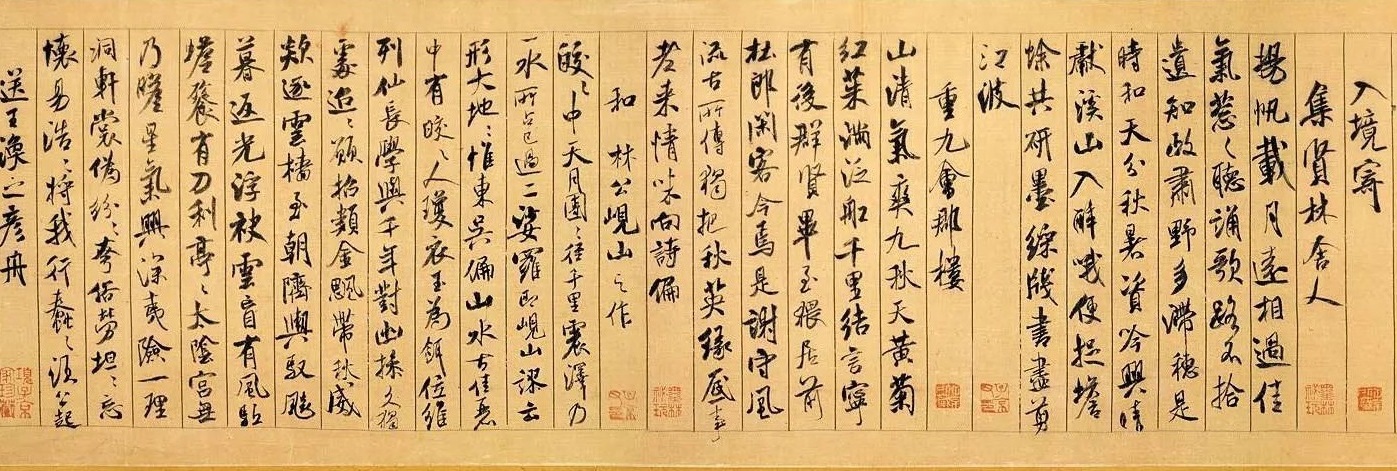 入境寄
集賢林舍人
揚帆載月遠相過佳
氣蔥〻聽誦歌路不拾
遺知政肅野多滯穗是
時和天分秋暑資吟興晴
獻溪山入醉哦便捉蟾
蜍共研墨綵牋書盡剪
江波
重九會郡樓
山清氣爽九秋天黃菊
紅茱滿泛船千里結言寧
有後群賢畢至猥居前
杜郎閑客今焉是謝守風
流古所傳獨把秋英緣底事
老來情味向詩偏
和林公峴山之作
皎〻中天月團〻徑千里震澤乃
一水所占已過二娑羅即峴山謬云
形大地〻惟東吳偏山水古佳麗
中有皎〻人瓊衣玉為餌位維
列仙長學與千年對幽操久獨
處迢〻願招類金颸帶秋威
欻逐雲檣至朝隮輿馭飆
暮返光浮袂雲盲有風駈
蟾餮有刀利亭〻太陰宮無
乃瞻星氣興深夷險一理
洞軒裳偽紛〻夸俗勞坦〻忘
懷易浩〻將我行蠢〻須公起
送王渙之彥舟